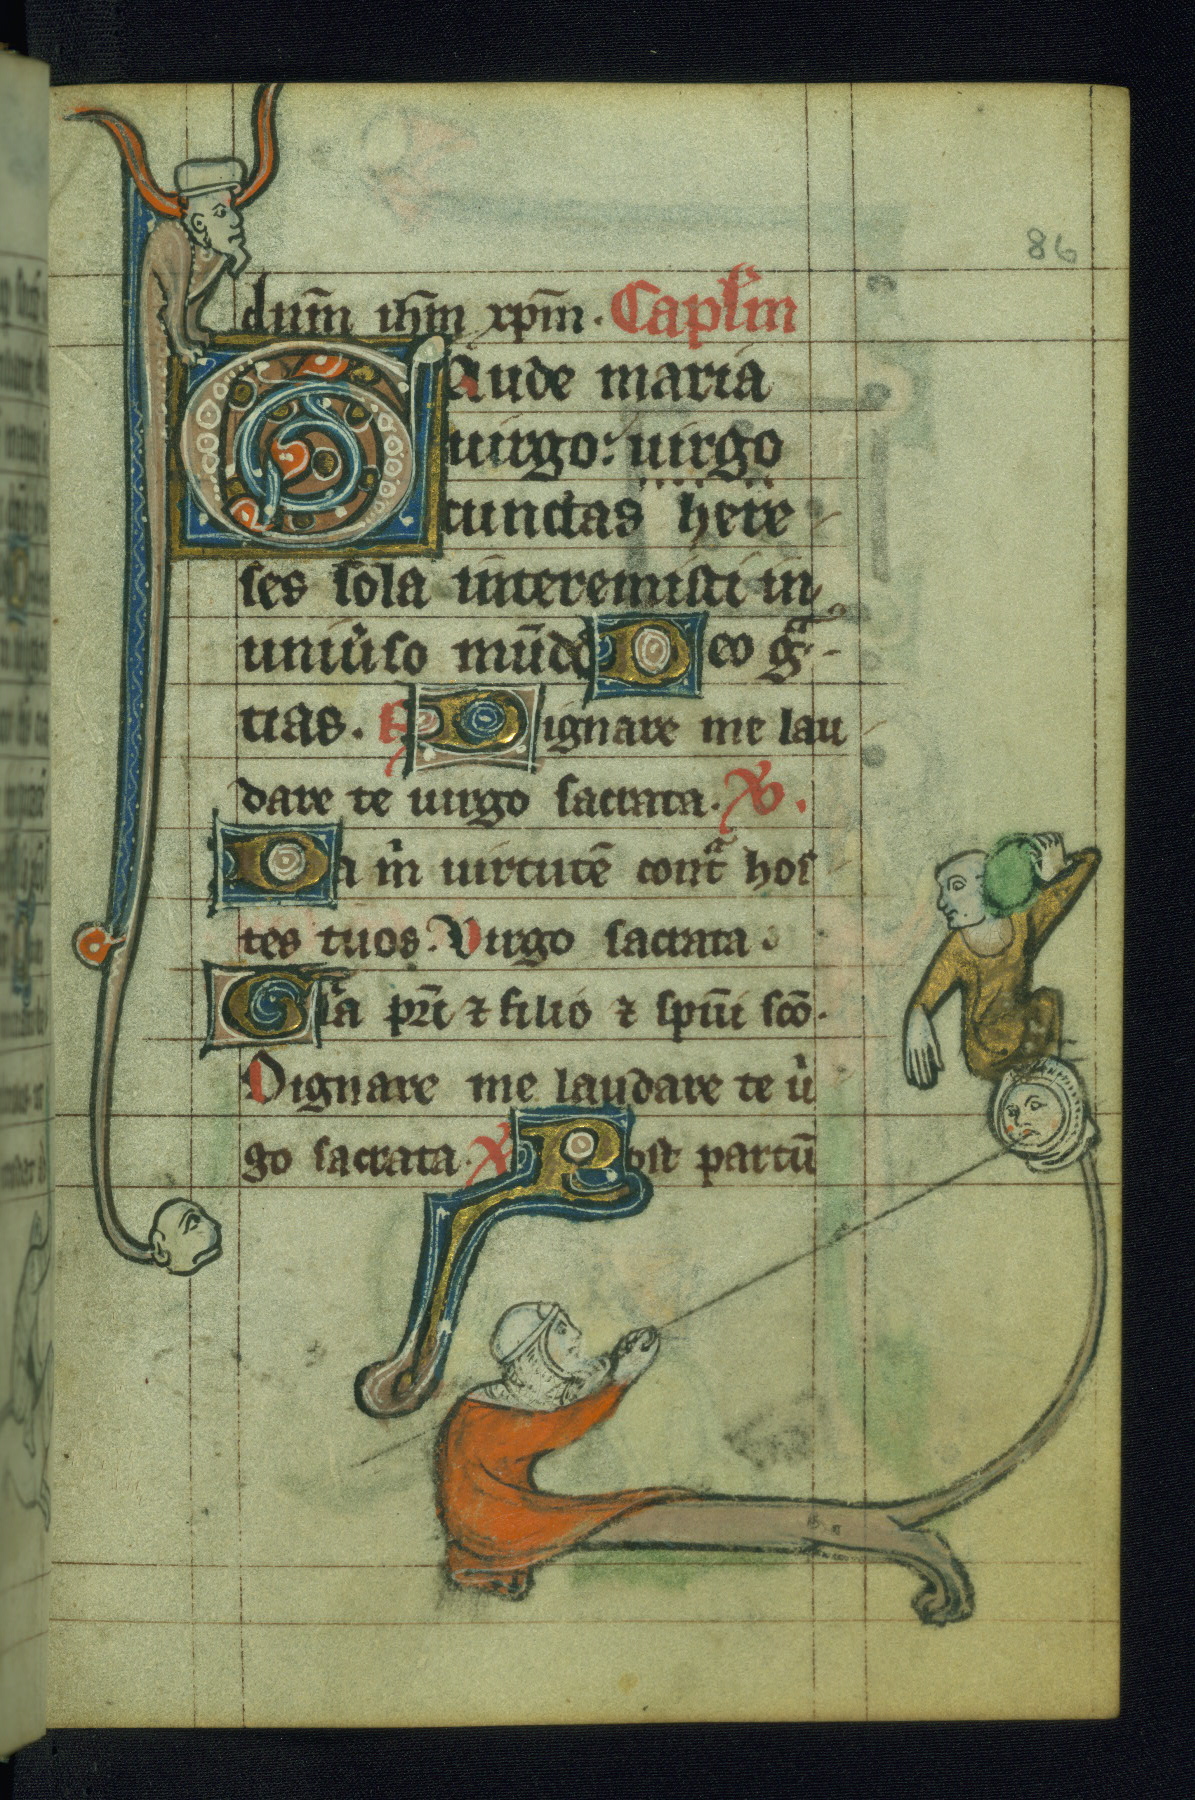 86
dum̄ ih̄m xp̄m. Capl̄m
Gaude maria
uirgo: uirgo
cunctas here
ses sola interemisti in
uniu̾so mūdo Deo gͣ
tias. R Dignare me lau
dare te uirgo sacrata. V.
Da m̄ uirtutē contͣ hos
tes tuos. Virgo sacrata
Gl̄a pr̄i ⁊ filio ⁊ spūi scō.
Dignare me laudare te ů
go sacrata. V Post partū